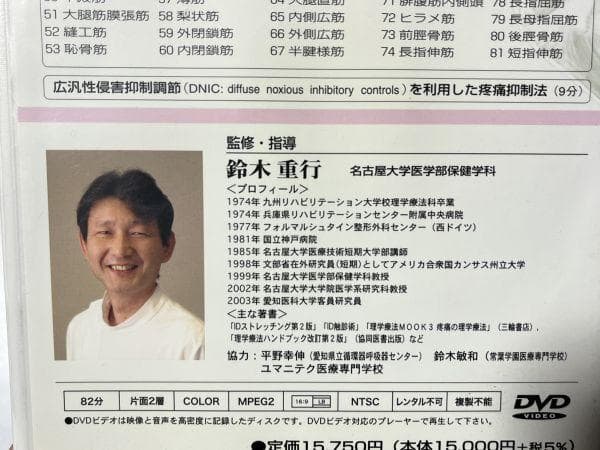 51 大腿筋膜張筋 58 梨状筋 65 内側広筋 72 ヒラメ筋 79 長母指屈筋
52 縫工筋 59 外閉鎖筋 66 外側広筋 73 前脛骨筋 80 後脛骨筋
53 恥骨筋 60 内閉鎖筋 67 半腱様筋 74 長指伸筋 81 短指伸筋
広汎性侵害抑制調節(DNIC: diffuse noxious inhibitory controls)を利用した疼痛抑制法(9分)
監修・指導
鈴木 重行 名古屋大学医学部保健学科
<プロフィール>
1974年 九州リハビリテーション大学校理学療法科卒業
1974年 兵庫県リハビリテーションセンター附属中央病院
1977年 フォルマルシュタイン整形外科センター(西ドイツ)
1981年 国立神戸病院
1985年 名古屋大学医療技術短期大学部講師
1998年 文部省在外研究員(短期)としてアメリカ合衆国カンサス州立大学
1999年 名古屋大学医学部保健学科教授
2002年 名古屋大学大学院医学系研究科教授
2003年 愛知医科大学客員研究員
<主な著書>
「IDストレッチング第2版」「ID触診術」「理学療法MOOK3 疼痛の理学療法」(三輪書店),
「理学療法ハンドブック改訂第2版」(協同医書出版)など
協力:平野幸伸(愛知県立循環器呼吸器センター) 鈴木敏和(常葉学園医療専門学校)
ユマニテク医療専門学校
82分 片面2層 COLOR MPEG2 16:9 LB NTSC レンタル不可 複製不能 DVD VIDEO
●DVDビデオは映像と音声を高密度に記録したディスクです。DVDビデオ対応のプレーヤーで再生して下さい。
●定価15,750円(本体15,000円+税5%)